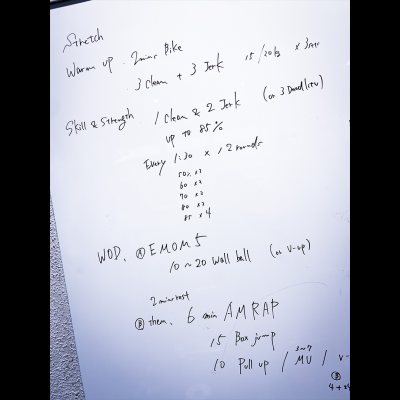 Stretch
Warm up . 2 mins Bike
3 Clean + 3 Jerk 15/20kg x 3 set
Skill & Strength 1 Clean & 2 Jerk (or 3 Deadlift)
up to 85%
Every 1:30 x 12 rounds
50% x2
60 x2
70 x2
80 x2
85 x4
WOD. Ⓐ EMOM 5
10 ~ 20 Wall ball (or V-up)
2 mins rest
Ⓑ then, 6 min AMRAP
15 Box jump
3~7
10 Pull up / MU / V-
4 +